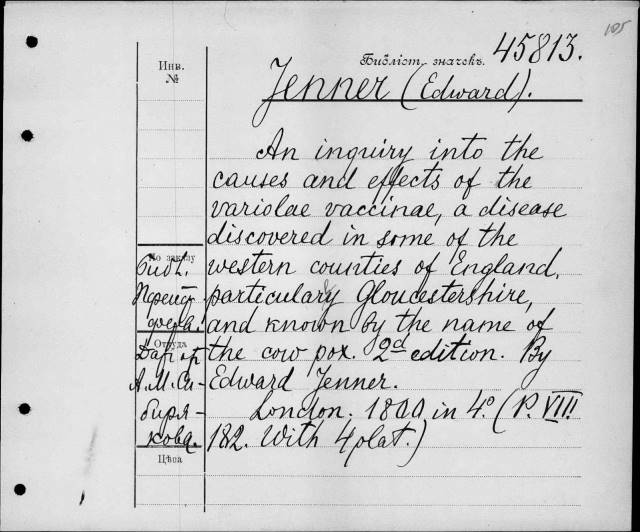 105
45813.
Инв.
№
Библіот. значекъ.
Jenner (Edward).
An inquiry into the
causes and effects of the
variolae vaccinae, a disease
discovered in some of the
По заказу
Библ.
western counties of England,
particulary Gloucestershire,
and known by the name of
Откуда
Дар от
the cow pox. 2d edition. By
А. М. Си-
Edward Jenner.
биря-
London. 1800 in 4.º (P. VIII
кова.
182. With 4 plat.)
Цѣна